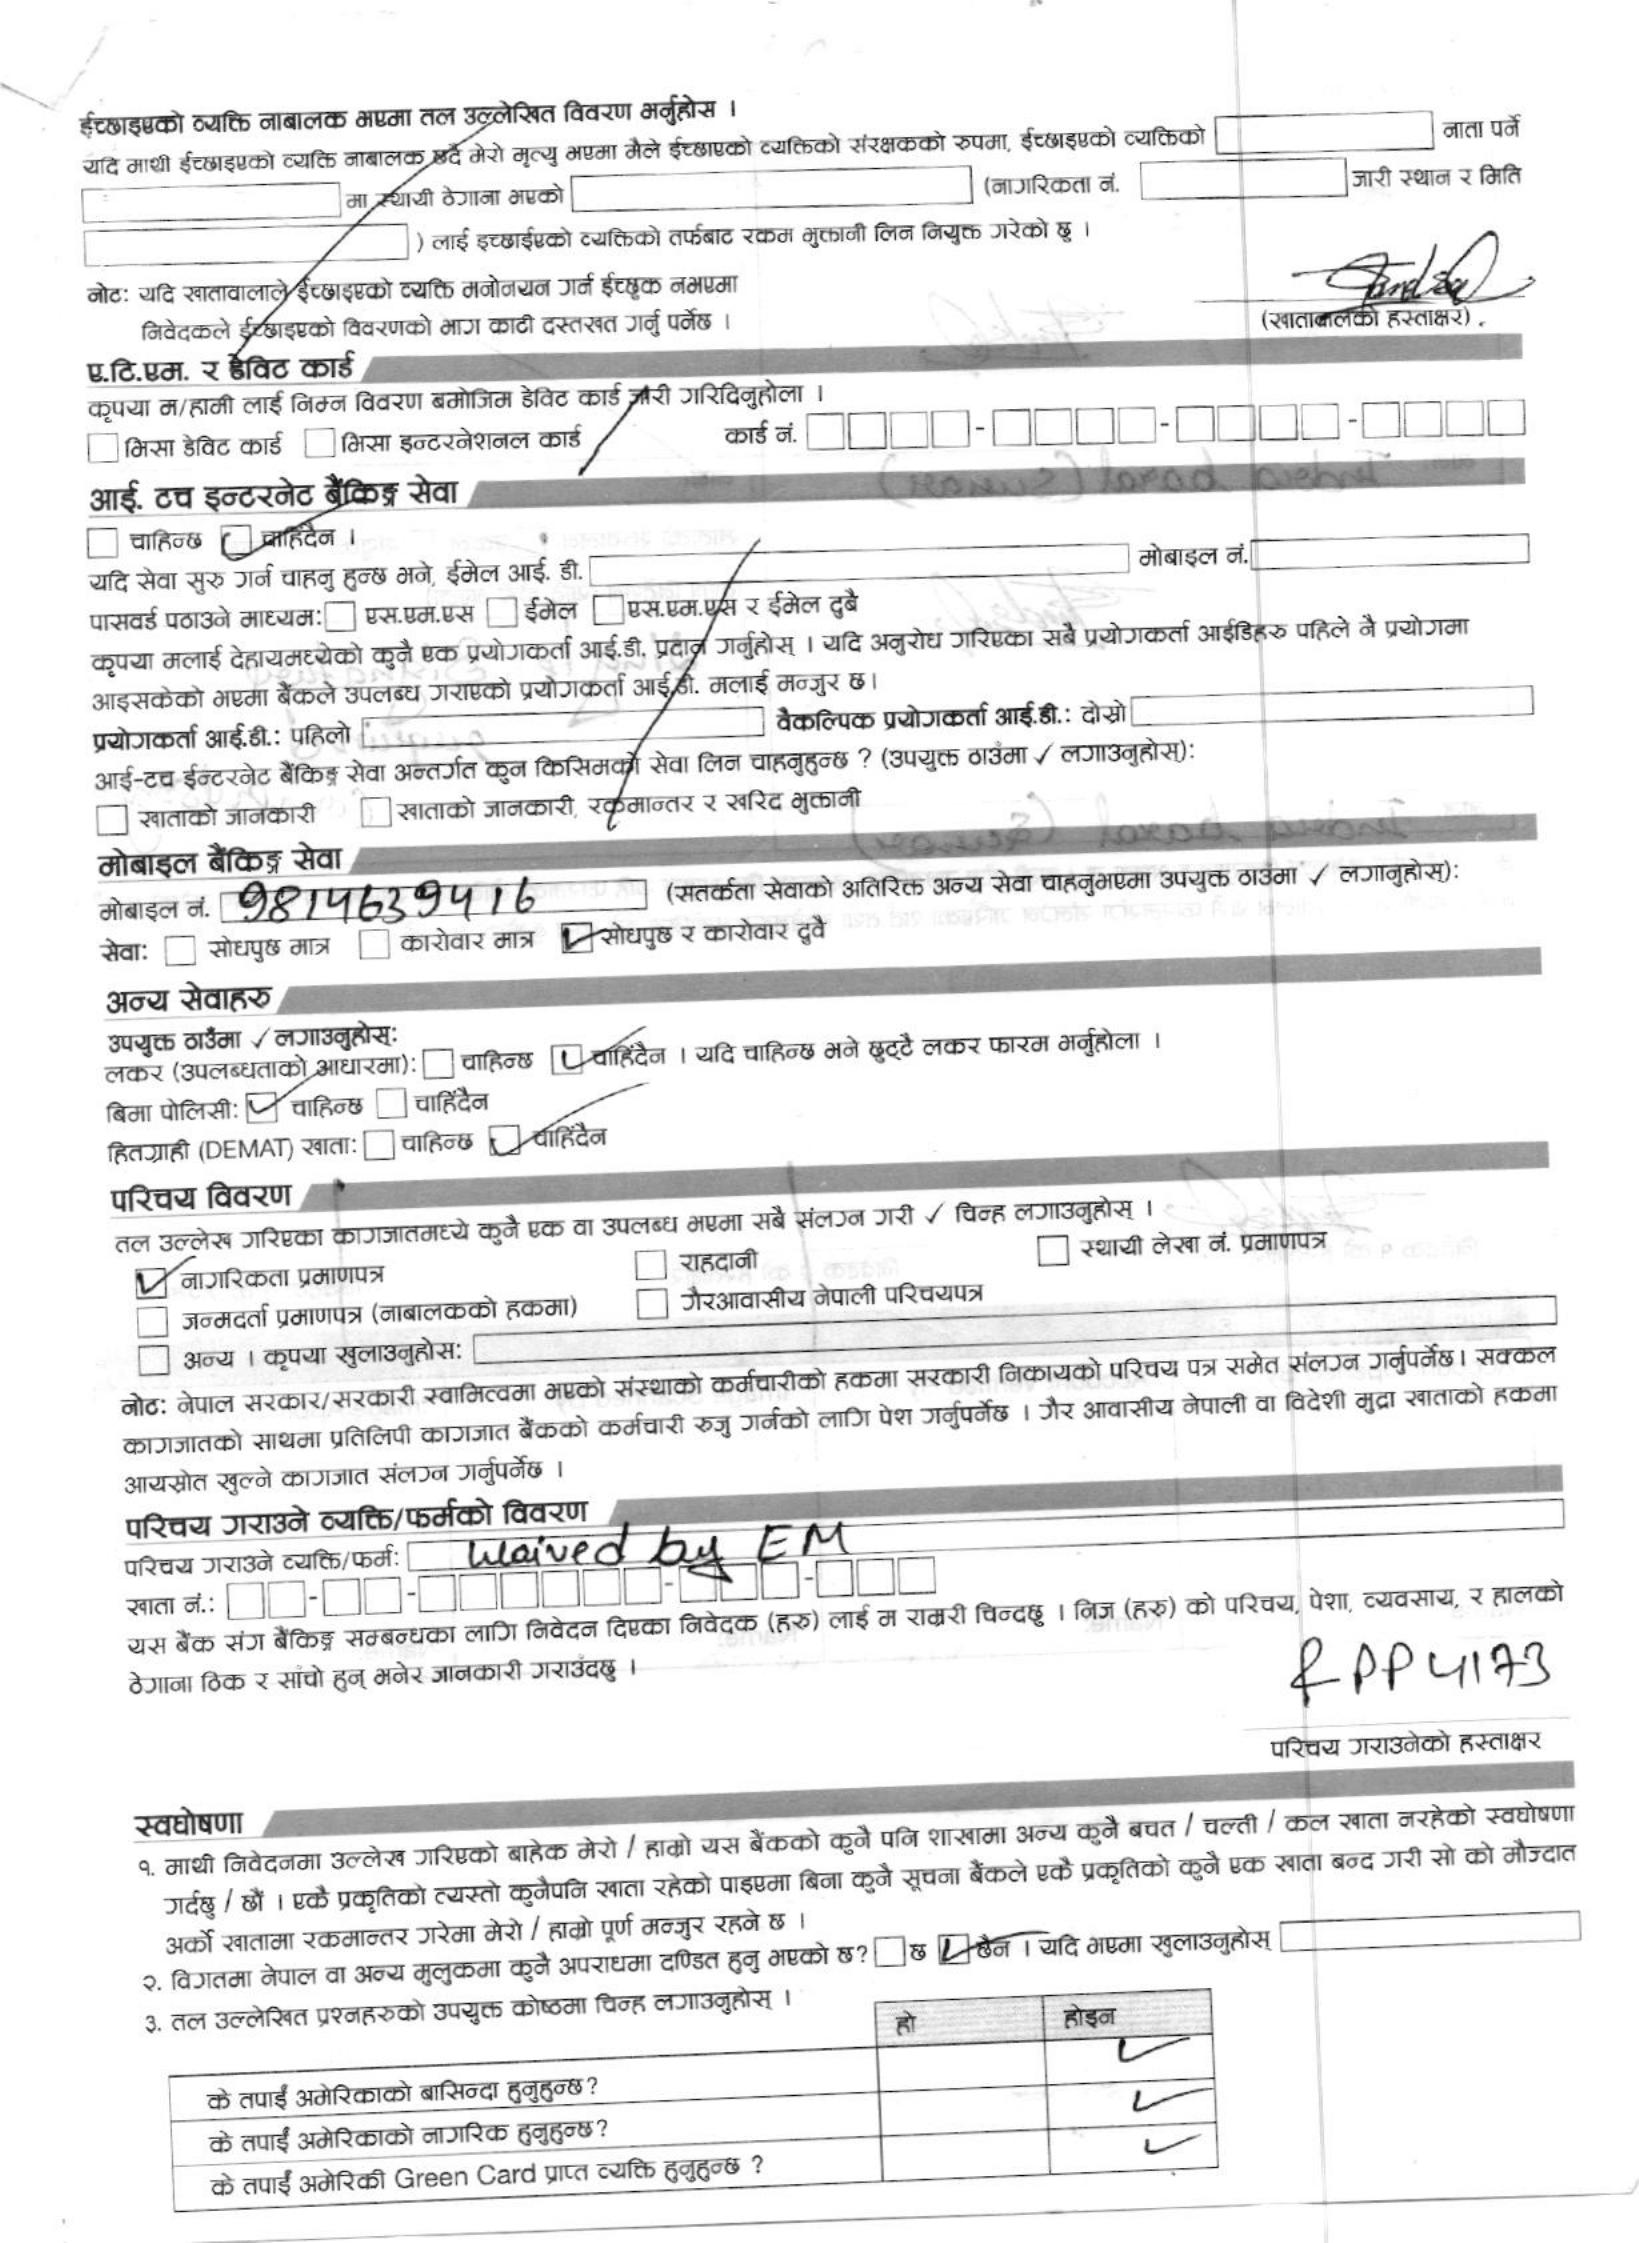 ईच्छाइएको व्यक्ति नाबालक भएमा तल उल्लेखित विवरण भर्नुहोस ।
यदि माथी ईच्छाइएको व्यक्ति नाबालक छदै मेरो मृत्यु भएमा मैले ईच्छाएको व्यक्तिको संरक्षकको रुपमा, ईच्छाइएको व्यक्तिको नाता पर्ने
मा स्थायी ठेगाना भएको (नागरिकता नं. जारी स्थान र मिति
) लाई इच्छाईएको व्यक्तिको तर्फबाट रकम भुक्तानी लिन नियुक्त गरेको छु ।
नोट: यदि खातावालाले ईच्छाइएको व्यक्ति मनोनयन गर्न ईच्छुक नभएमा
निवेदकले ईच्छाइएको विवरणको भाग काटी दस्तखत गर्नु पर्नेछ ।
(खातावालको हस्ताक्षर)
ए.टि.एम. र डेविट कार्ड
कृपया म/हामी लाई निम्न विवरण बमोजिम डेविट कार्ड जारी गरिदिनुहोला ।
भिसा डेविट कार्ड भिसा इन्टरनेशनल कार्ड कार्ड नं. - - -
आई. टच इन्टरनेट बैंकिङ्ग सेवा
चाहिन्छ चाहिँदैन ।
यदि सेवा सुरु गर्न चाहनु हुन्छ भने, ईमेल आई. डी. मोबाइल नं.
पासवर्ड पठाउने माध्यम: एस.एम.एस ईमेल एस.एम.एस र ईमेल दुबै
कृपया मलाई देहायमध्येको कुनै एक प्रयोगकर्ता आई.डी. प्रदान गर्नुहोस् । यदि अनुरोध गरिएका सबै प्रयोगकर्ता आईडिहरु पहिले नै प्रयोगमा
आइसकेको भएमा बैंकले उपलब्ध गराएको प्रयोगकर्ता आई.डी. मलाई मन्जुर छ।
प्रयोगकर्ता आई.डी.: पहिलो वैकल्पिक प्रयोगकर्ता आई.डी.: दोस्रो
आई-टच ईन्टरनेट बैंकिङ्ग सेवा अन्तर्गत कुन किसिमको सेवा लिन चाहनुहुन्छ ? (उपयुक्त ठाउँमा ✓ लगाउनुहोस्):
खाताको जानकारी खाताको जानकारी, रकमान्तर र खरिद भुक्तानी
मोबाइल बैंकिङ्ग सेवा
मोबाइल नं. 9814639416 (सतर्कता सेवाको अतिरिक्त अन्य सेवा चाहनुभएमा उपयुक्त ठाउँमा ✓ लगानुहोस्):
सेवा: सोधपुछ मात्र कारोवार मात्र सोधपुछ र कारोवार दुवै
अन्य सेवाहरु
उपयुक्त ठाउँमा ✓ लगाउनुहोस्:
लकर (उपलब्धताको आधारमा): चाहिन्छ चाहिँदैन । यदि चाहिन्छ भने छुट्टै लकर फारम भर्नुहोला ।
बिमा पोलिसी: चाहिन्छ चाहिँदैन
हितग्राही (DEMAT) खाता: चाहिन्छ चाहिँदैन
परिचय विवरण
तल उल्लेख गरिएका कागजातमध्ये कुनै एक वा उपलब्ध भएमा सबै संलग्न गरी ✓ चिन्ह लगाउनुहोस् ।
नागरिकता प्रमाणपत्र राहदानी स्थायी लेखा नं. प्रमाणपत्र
जन्मदर्ता प्रमाणपत्र (नाबालकको हकमा) गैरआवासीय नेपाली परिचयपत्र
अन्य । कृपया खुलाउनुहोस:
नोट: नेपाल सरकार/सरकारी स्वामित्वमा भएको संस्थाको कर्मचारीको हकमा सरकारी निकायको परिचय पत्र समेत संलग्न गर्नुपर्नेछ। सक्कल
कागजातको साथमा प्रतिलिपी कागजात बैंकको कर्मचारी रुजु गर्नको लागि पेश गर्नुपर्नेछ । गैर आवासीय नेपाली वा विदेशी मुद्रा खाताको हकमा
आयस्रोत खुल्ने कागजात संलग्न गर्नुपर्नेछ ।
परिचय गराउने व्यक्ति/फर्मको विवरण
परिचय गराउने व्यक्ति/फर्म: Waived by EM
खाता नं.: - - - -
यस बैंक संग बैंकिङ्ग सम्बन्धका लागि निवेदन दिएका निवेदक (हरु) लाई म राम्ररी चिन्दछु । निज (हरु) को परिचय, पेशा, व्यवसाय, र हालको
ठेगाना ठिक र सांचो हुन् भनेर जानकारी गराउंदछु ।
PP4173
परिचय गराउनेको हस्ताक्षर
स्वघोषणा
१. माथी निवेदनमा उल्लेख गरिएको बाहेक मेरो / हाम्रो यस बैंकको कुनै पनि शाखामा अन्य कुनै बचत / चल्ती / कल खाता नरहेको स्वघोषणा
गर्दछु / छौं । एकै प्रकृतिको त्यस्तो कुनैपनि खाता रहेको पाइएमा बिना कुनै सूचना बैंकले एकै प्रकृतिको कुनै एक खाता बन्द गरी सो को मौज्दात
अर्को खातामा रकमान्तर गरेमा मेरो / हाम्रो पूर्ण मन्जुर रहने छ ।
२. विगतमा नेपाल वा अन्य मुलुकमा कुनै अपराधमा दण्डित हुनु भएको छ? छ छैन । यदि भएमा खुलाउनुहोस्
३. तल उल्लेखित प्रश्नहरुको उपयुक्त कोष्ठमा चिन्ह लगाउनुहोस् ।
हो होइन
के तपाईं अमेरिकाको बासिन्दा हुनुहुन्छ? ✓
के तपाईं अमेरिकाको नागरिक हुनुहुन्छ? ✓
के तपाईं अमेरिकी Green Card प्राप्त व्यक्ति हुनुहुन्छ ? ✓